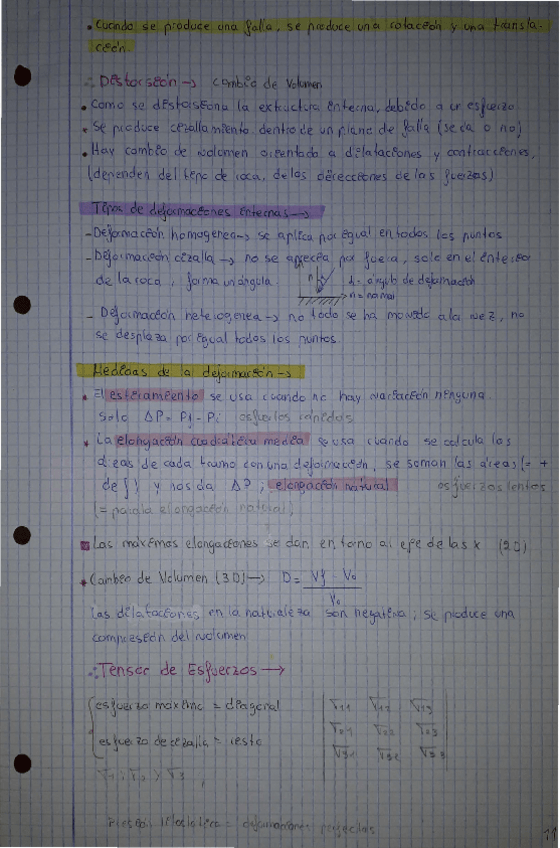 • Cuando se produce una falla, se produce una rotación y una transla-
ción.
∴ Distorsión → cambio de volumen
• Como se distorsiona la extructura interna, debido a un esfuerzo
• Se produce cizallamiento dentro de un plano de falla (se da o no)
• Hay cambio de volumen orientado a dilataciones y contracciones,
(dependen del tipo de roca, de las direcciones de las fuerzas)
Tipos de deformaciones internas →
- Deformación homogenea → se aplica por igual en todos los puntos
- Deformación cizalla → no se aprecia por fuera, solo en el interior
de la roca, forma un ángulo.
α = ángulo de deformación
n = normal
- Deformación heterogenea → no todo se ha movido a la vez, no
se desplaza por igual todos los puntos.
Medidas de la deformación →
• El estiramiento se usa cuando no hay variación ninguna
solo ΔP = Pf - Pi esfuerzos rápidos
• La elongación cuadrática media se usa cuando se calcula las
áreas de cada tramo con una deformación, se suman las áreas (= +
de ∫) y nos da ΔP ; elongación natural esfuerzos lentos
(= para la elongación natural)
Las máximas elongaciones se dan en torno al eje de las x (2D)
• Cambio de Volumen (3D) → D = Vf - Vo
Vo
Las dilataciones en la naturaleza son negativa; se produce una
compresión del volumen
∴ Tensor de Esfuerzos →
esfuerzo máximo = diagonal
esfuerzo de cizalla = resto